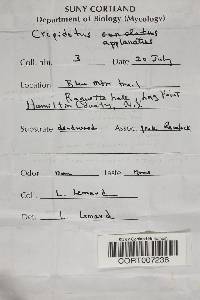 SUNY CORTLAND
Department of Biology (Mycology)
Crepidotus
applanatus
Coll. no. 3 Date 20 July
Location Blue Mtn trail
Raquette Lake, Long Point
Hamilton County, NY
Substrate deadwood Assoc.
Odor None Taste None
Col. L. Leonard
Det. L Leonard
CORT007238